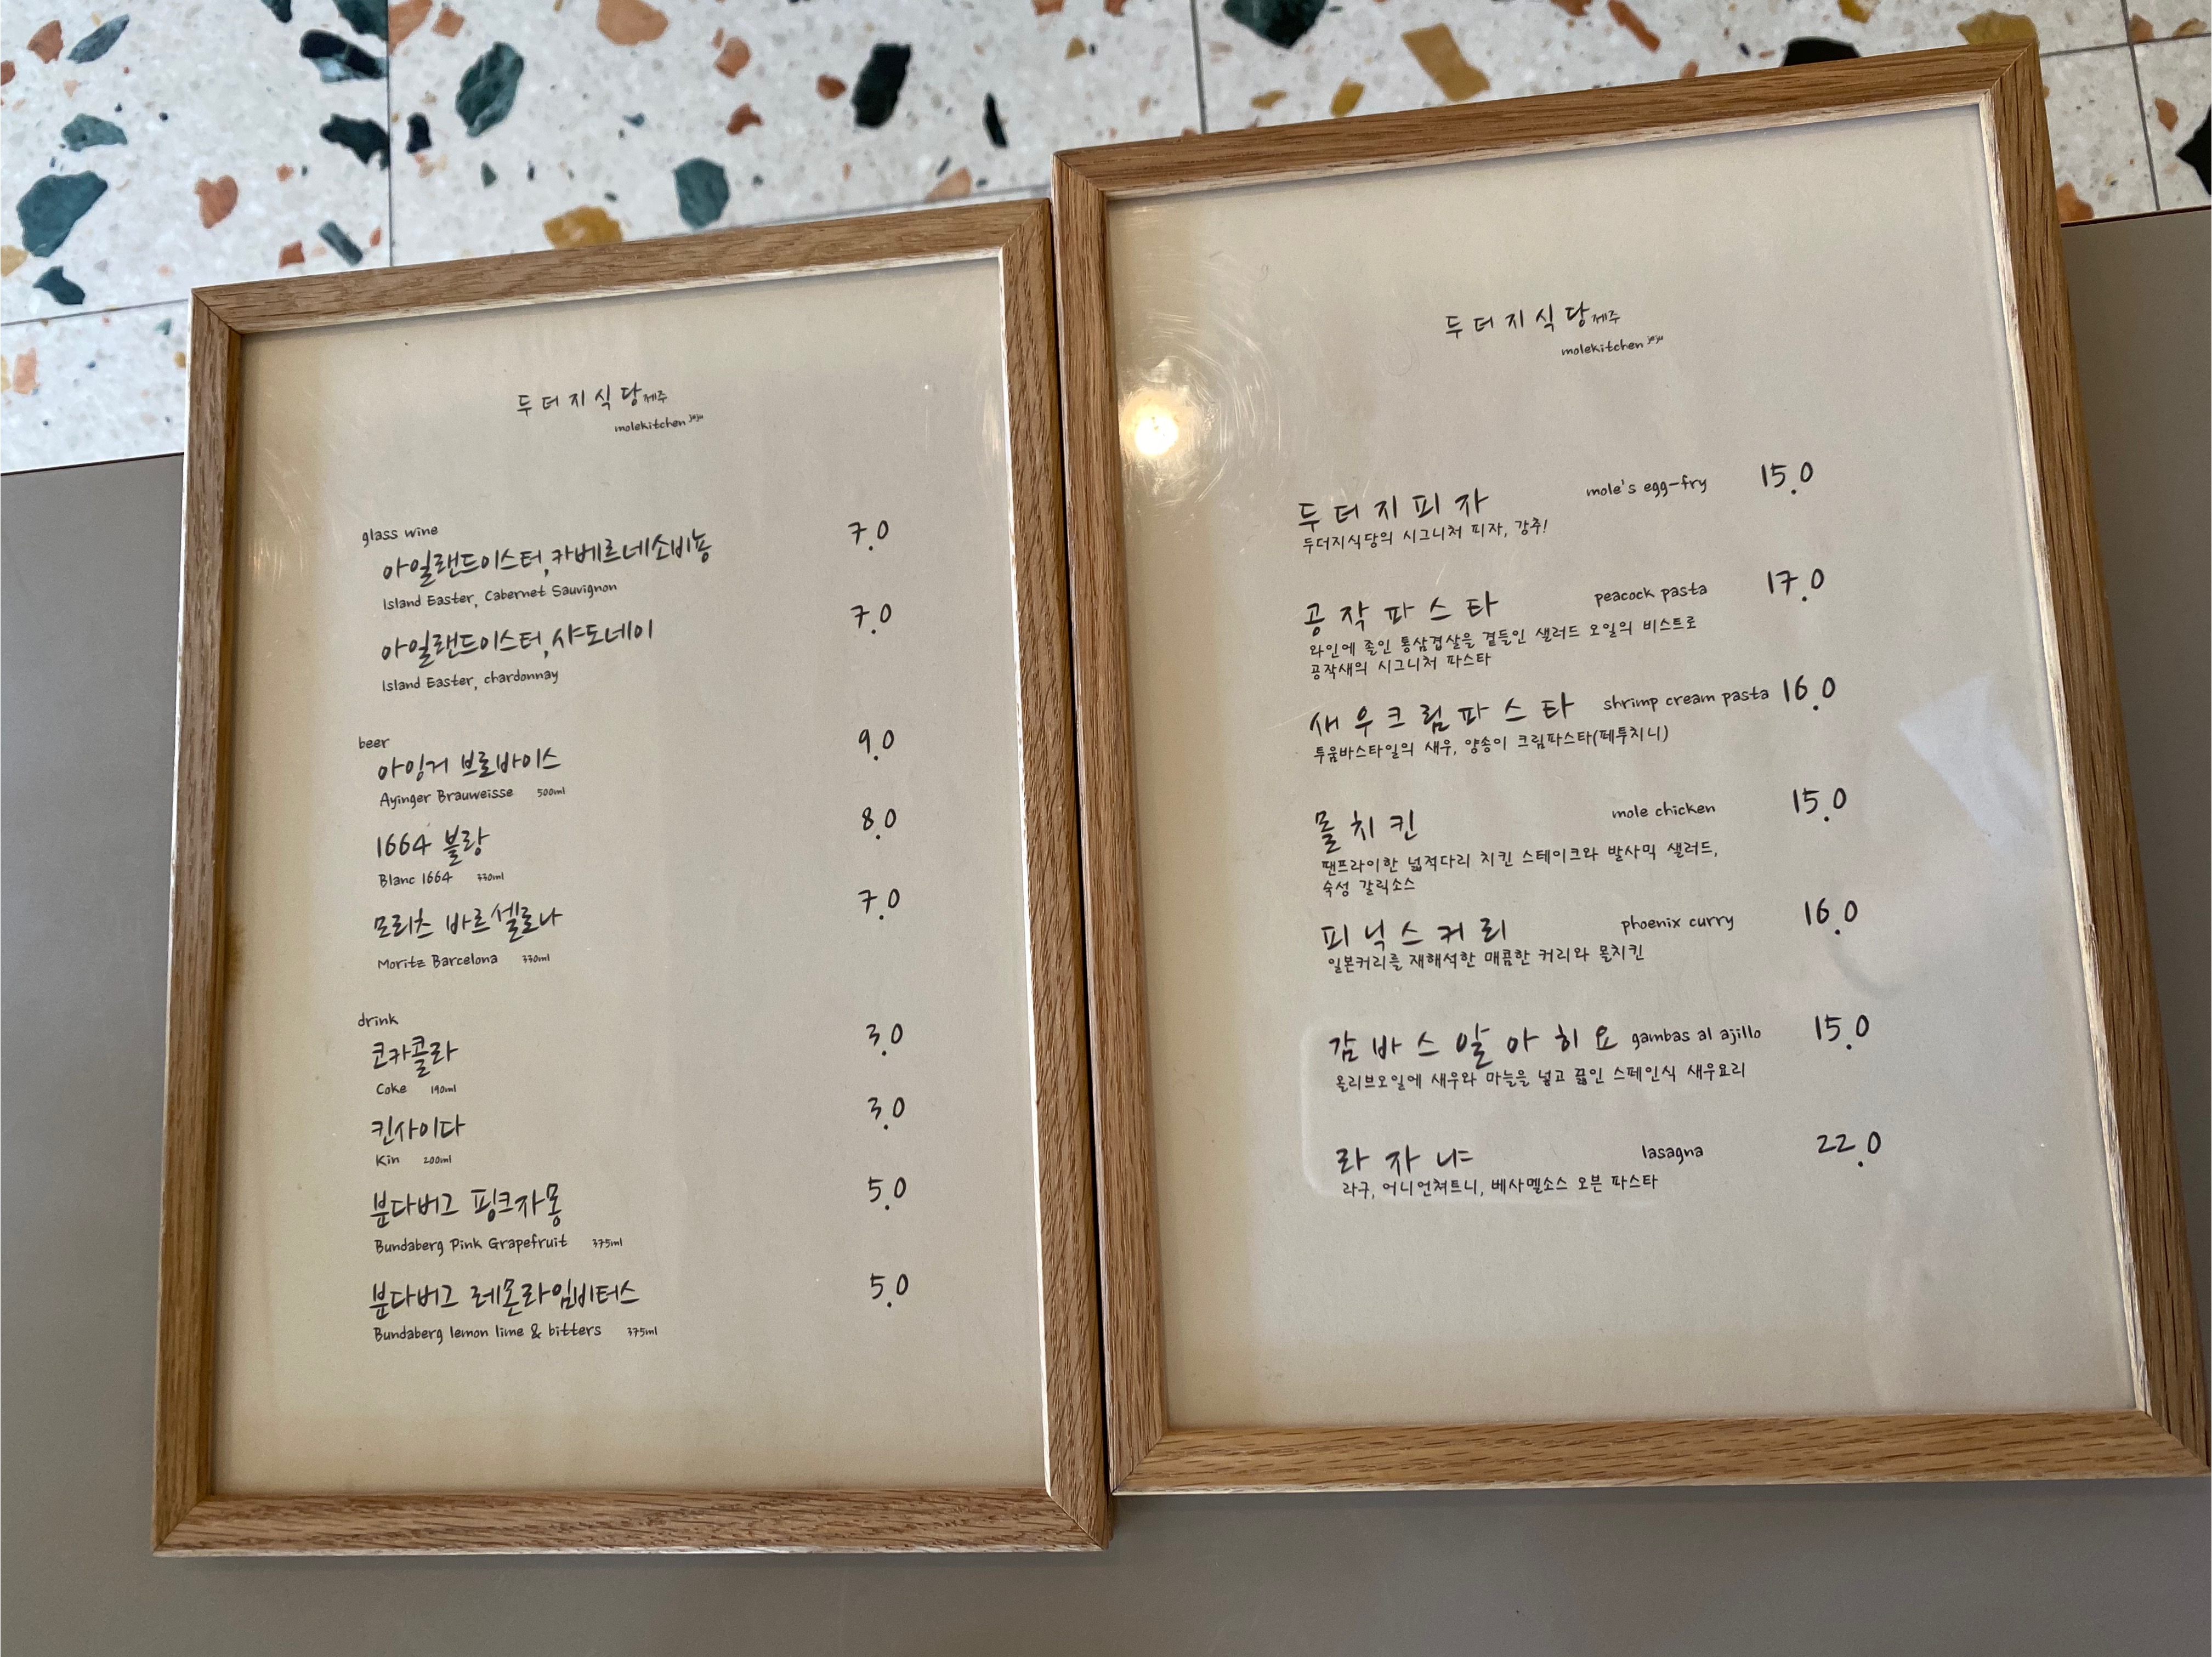 두더지식당 제주
molekitchen jeju
glass wine
아일랜드이스터, 카베르네소비뇽 7.0
Island Easter, Cabernet Sauvignon
아일랜드이스터, 샤도네이 7.0
Island Easter, chardonnay
beer
아잉거 브로바이스 9.0
Ayinger Brauweisse 500ml
1664 블랑 8.0
Blanc 1664 330ml
모리츠 바르셀로나 7.0
Moritz Barcelona 330ml
drink
코카콜라 3.0
Coke 190ml
킨사이다 3.0
Kin 200ml
분다버그 핑크자몽 5.0
Bundaberg Pink Grapefruit 375ml
분다버그 레몬라임비터스 5.0
Bundaberg lemon lime & bitters 375ml
두더지식당 제주
molekitchen jeju
두더지피자 mole's egg-fry 15.0
두더지식당의 시그니처 피자, 강추!
공작파스타 peacock pasta 17.0
와인에 졸인 통삼겹살을 곁들인 샐러드 오일의 비스트로
공작새의 시그니처 파스타
새우크림파스타 shrimp cream pasta 16.0
투움바스타일의 새우, 양송이 크림파스타(페투치니)
몰치킨 mole chicken 15.0
팬프라이한 넓적다리 치킨 스테이크와 발사믹 샐러드,
숙성 갈릭소스
피닉스커리 phoenix curry 16.0
일본커리를 재해석한 매콤한 커리와 몰치킨
감바스알아히요 gambas al ajillo 15.0
올리브오일에 새우와 마늘을 넣고 끓인 스페인식 새우요리
라자냐 lasagna 22.0
라구, 어니언쳐트니, 베사멜소스 오븐 파스타